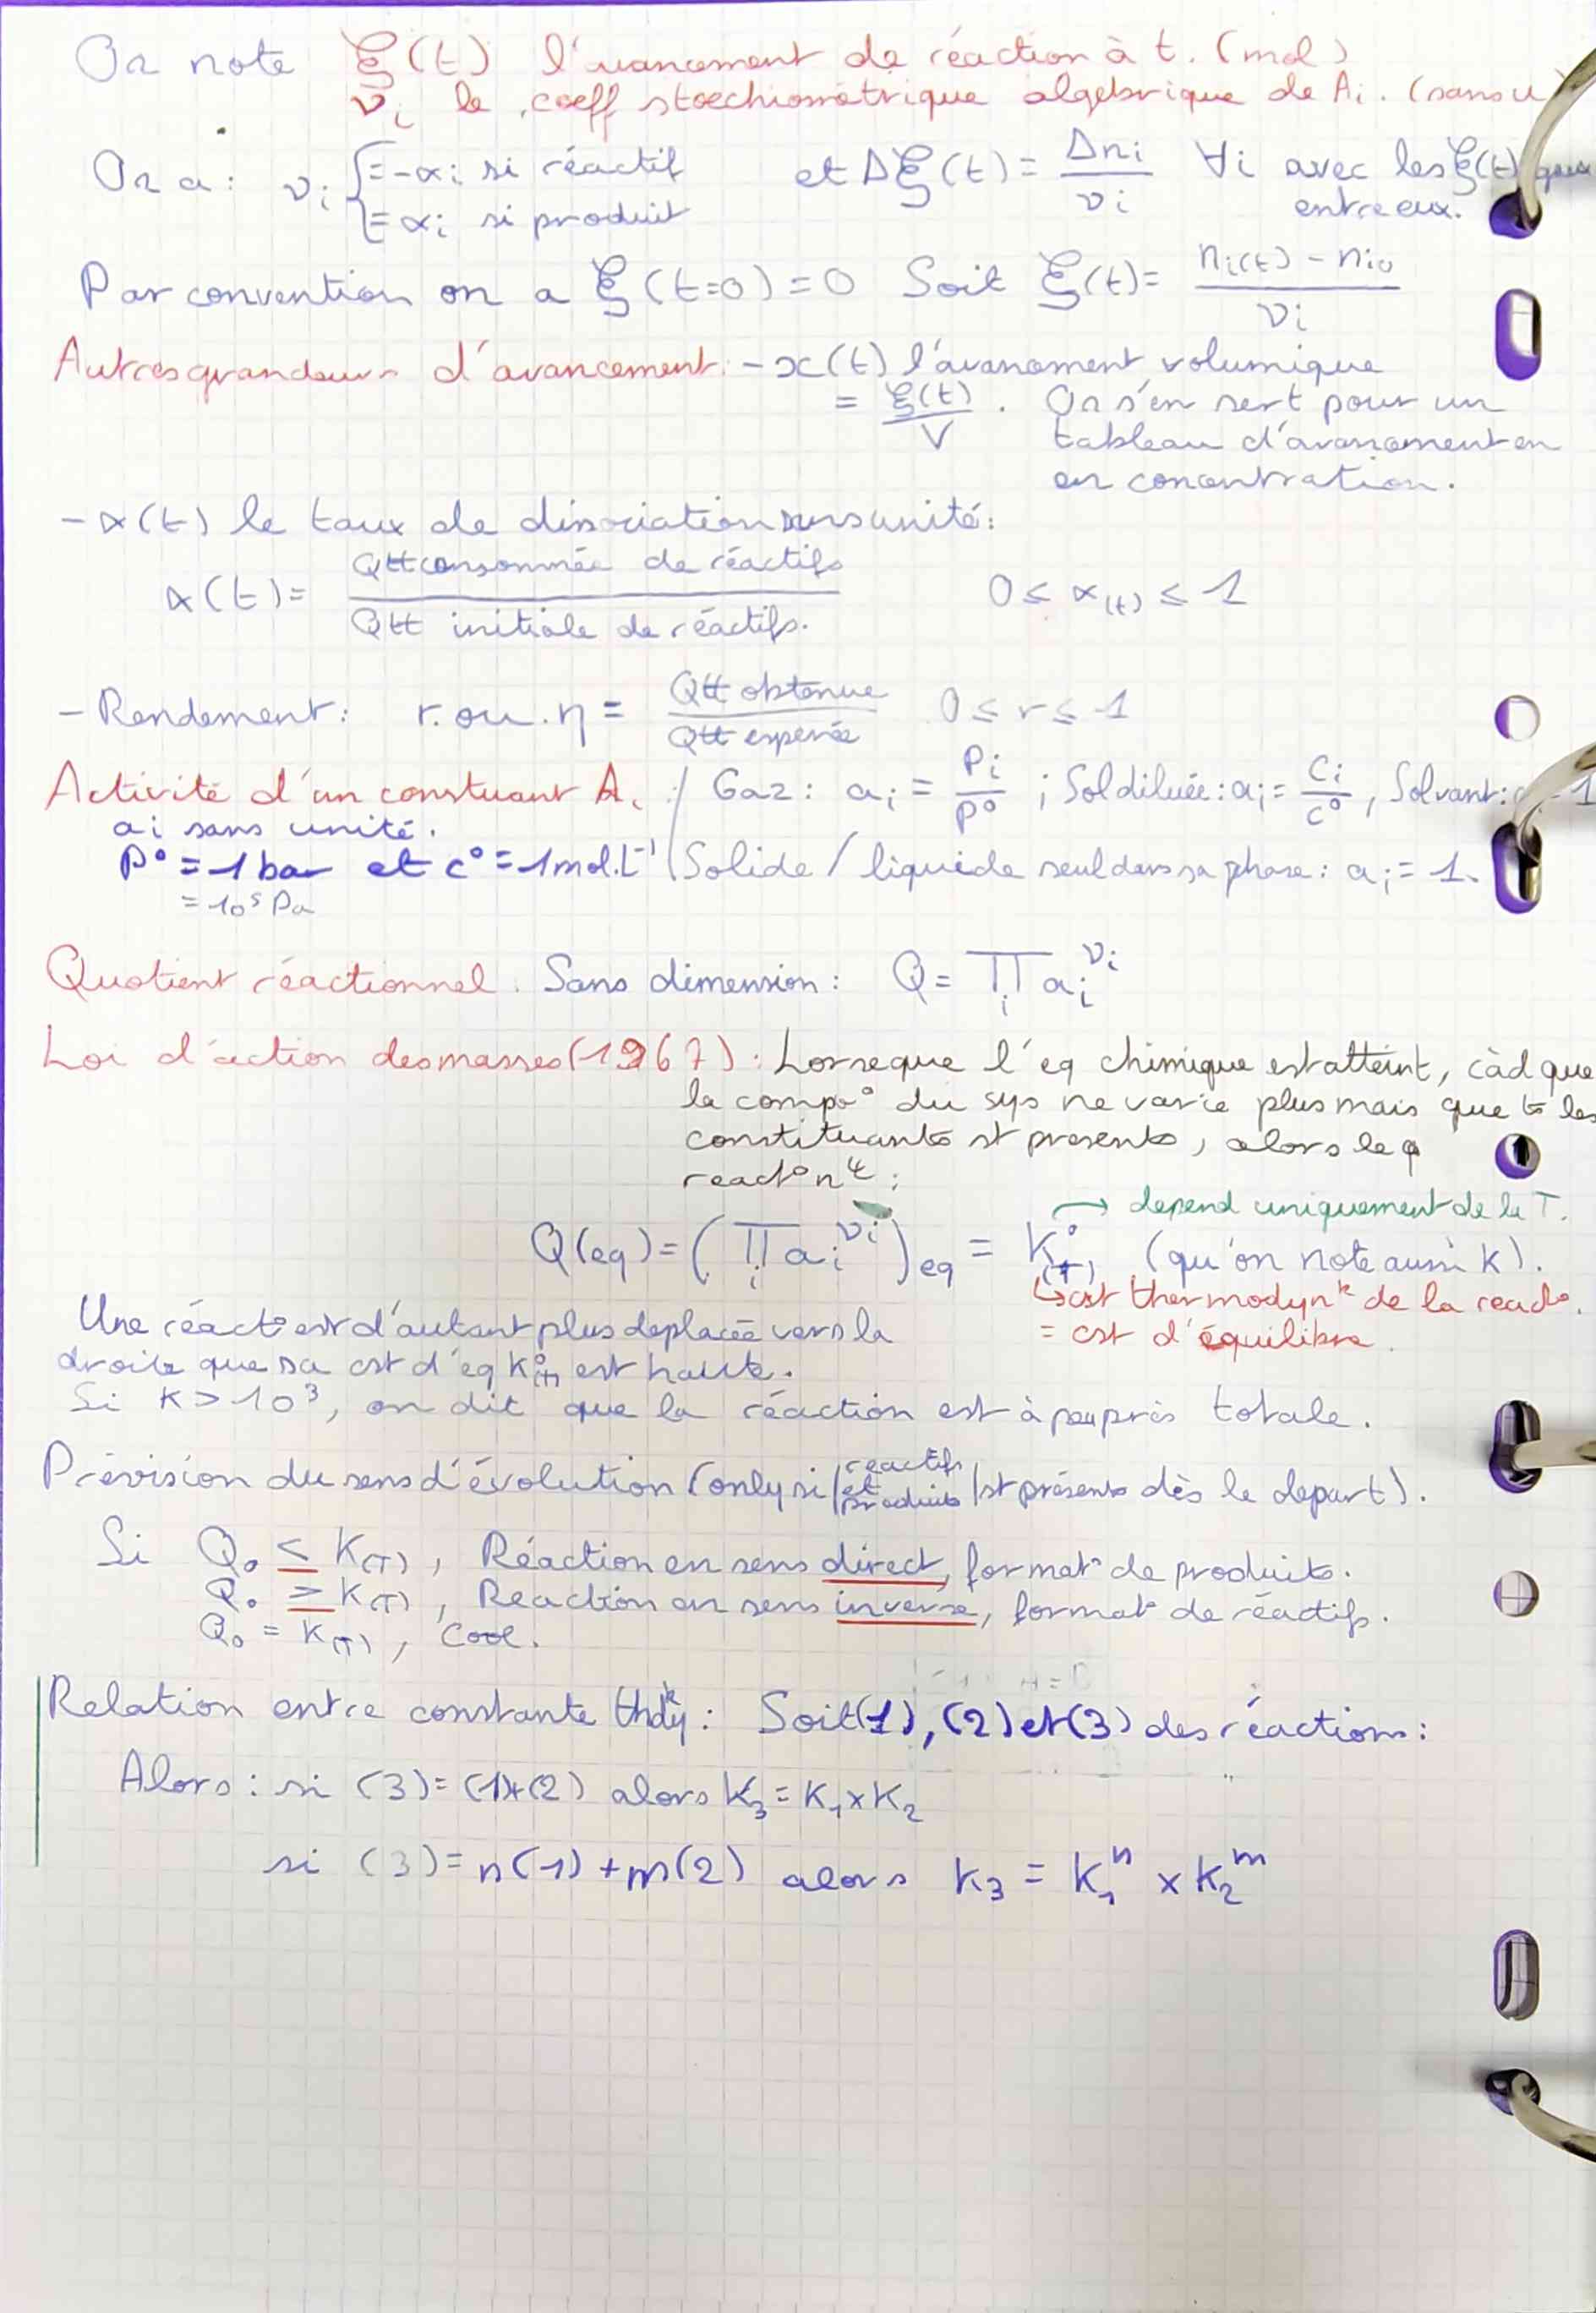 On note ξ(t) l'avancement de réaction à t. (mol)
νi le coeff stoechiométrique algébrique de Ai. (sans u
On a : νi { = -αi si réactif et Δξ(t) = Δni / νi ∀i avec les ξ(t)
= αi si produit entre eux.
Par convention on a ξ(t=0) = 0 Soit ξ(t) = (ni(t) - ni0) / νi
Autres grandeurs d'avancement : - x(t) l'avancement volumique
= ξ(t) / V . On s'en sert pour un
tableau d'avancement en
en concentration.
- α(t) le taux de dissociation sans unité :
α(t) = Qtt consommée de réactifs / Qtt initiale de réactifs. 0 ≤ α(t) ≤ 1
- Rendement : r. ou. η = Qtt obtenue / Qtt esperée 0 ≤ r ≤ 1
Activité d'un constuant Ai : / Gaz : ai = Pi / P° ; Sol diluée : ai = Ci / c° , Solvant : 1
ai sans unité.
P° = 1 bar et c° = 1 mol.L⁻¹ Solide / liquide seul dans sa phase : ai = 1.
= 10⁵ Pa
Quotient réactionnel. Sans dimension : Q = ∏i ai^νi
Loi d'action des masses (1967) : Lorseque l'eq chimique est atteint, càd que
la compo° du sys ne varie plus mais que ts les
constituants st presents, alors le q
react°n^el :
→ depend uniquement de la T.
Q(eq) = (∏i ai^νi)eq = K°(T) (qu'on note aussi K).
↳ cst thermodyn^k de la react°.
Une réact° est d'autant plus deplacée vers la = cst d'équilibre.
droite que sa cst d'eq K°(T) est haute.
Si K > 10³, on dit que la réaction est à peu près totale.
Prévision du sens d'évolution (only si | reactifs et produits | st présents dès le depart).
Si Q₀ < K(T) , Réaction en sens direct, format° de produits.
Q₀ > K(T) , Reaction en sens inverse, format° de réactifs.
Q₀ = K(T) , Cool.
Relation entre constante thdy^k : Soit (1), (2) et (3) des réactions :
Alors : si (3) = (1)+(2) alors K₃ = K₁ x K₂
si (3) = n(1) + m(2) alors K₃ = K₁ⁿ x K₂ᵐ